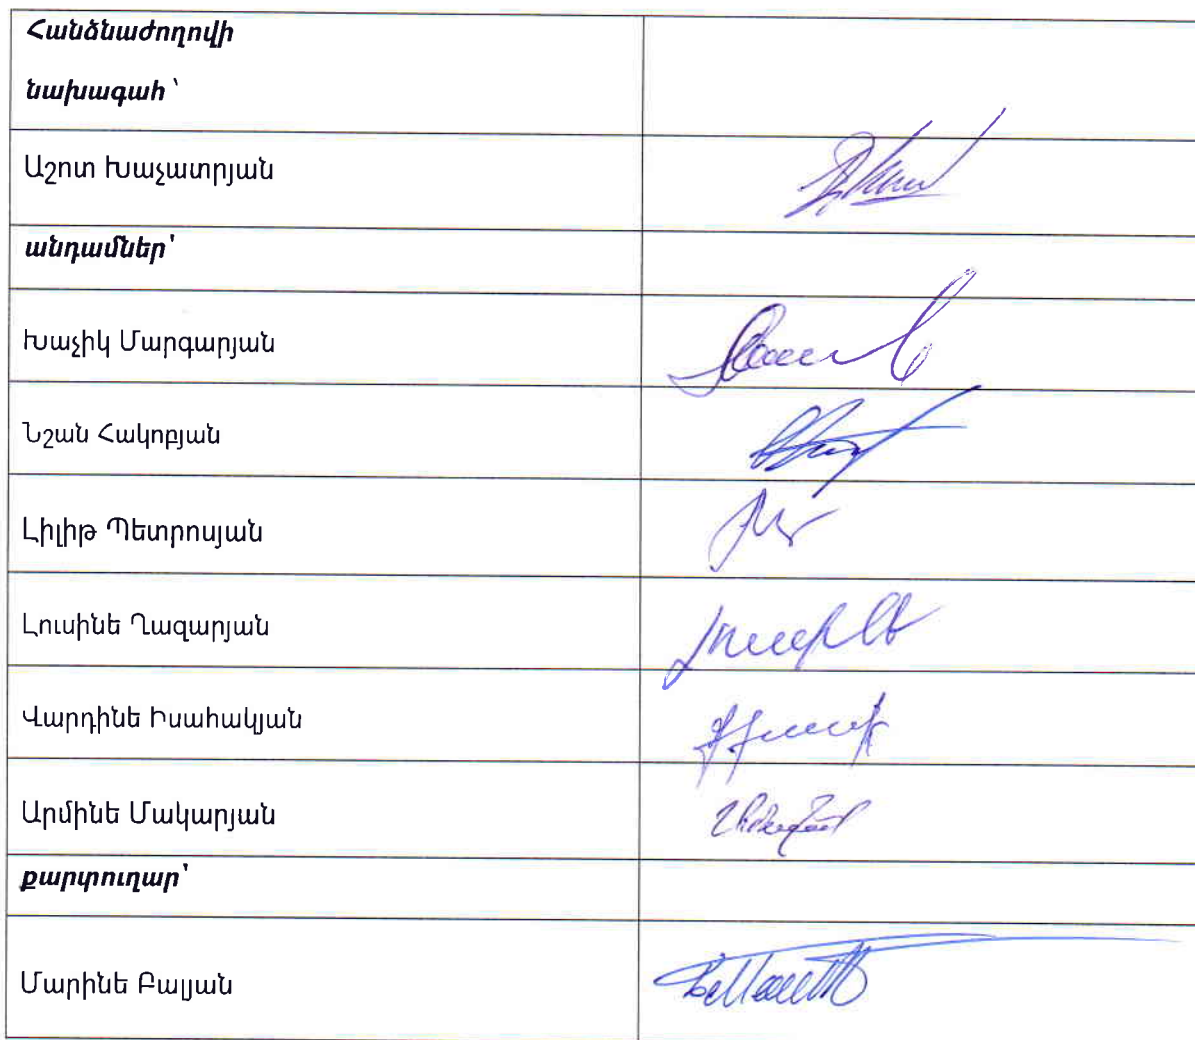 Հանձնաժողովի
նախագահ՝
Աշոտ Խաչատրյան
անդամներ՝
Խաչիկ Մարգարյան
Նշան Հակոբյան
Լիլիթ Պետրոսյան
Լուսինե Ղազարյան
Վարդինե Իսահակյան
Արմինե Մակարյան
քարտուղար՝
Մարինե Բալյան